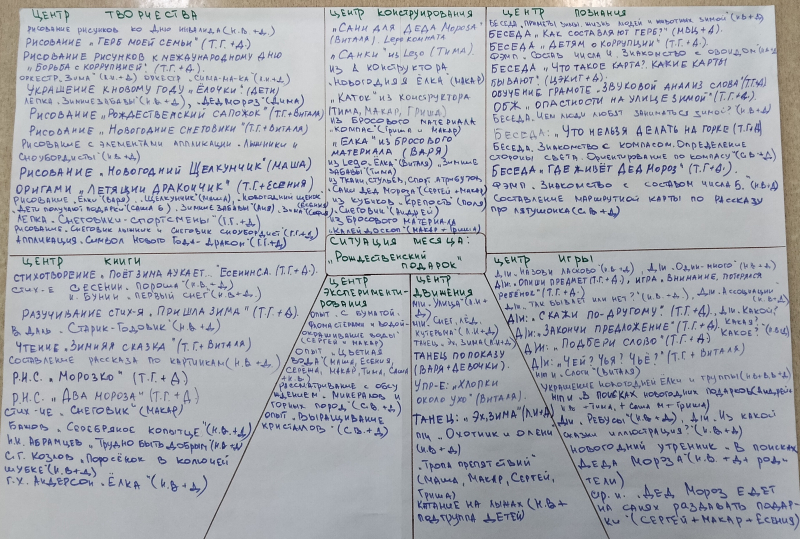 ЦЕНТР ТВОРЧЕСТВА
Рисование рисунков ко Дню инвалида (н.в.+Д)
Рисование „Герб моей семьи" (Т.Г.+Д)
Рисование рисунков к международному дню
„Борьба с коррупцией" (Т.Г.+Д).
Украшение к новому году „Ёлочки" (Дети)
Лепка. Зимние забавы (н.в.+Д), „Дед Мороз" (Дима)
Рисование „Рождественский сапожок" (Т.Г+Витали
Рисование „Новогодние снеговики" (Т.Г.+Витали
Рисование с элементами аппликации „Лыжники и
сноубордисты" (н.в.+Д)
Рисование „Новогодний Щелкунчик" (Маша)
Оригами „Летящий дракончик" (Т.Г+Есения).
Рисование „Ёлки (Варя), „Щелкунчик" (Маша)
Лепка „Снеговики-спортсмены" (Т.Г.+Д)
Рисование „Снеговик лыжник и снеговик сноубордист" (Т.Г.+Д)
Аппликация. Символ Нового Года - Дракон" (Т.Г.+Д)
ЦЕНТР КОНСТРУИРОВАНИЯ
„Сани для Деда Мороза"
(Витали) Lego комната
„Санки" из Lego (Тима).
из конструктора
„Новогодняя Ёлка" (Макар)
„Каток" из конструктора
(Тима, Макар, Гриша)
Из бросового материала
„Компас" (Гриша и Макар)
„Ёлка" из бросового
материала (Варя)
из Lego „Ёлка" (Виталя) „Зимние
забавы" (Тима)
из ткани, стульев, спорт. атрибутов
„Сани Деда Мороза" (Сергей + Макар)
из кубиков „Крепость" (Поля)
„Снеговик" (Андрей)
из бросового материала
„Калейдоскоп" (Макар + Гриша)
ЦЕНТР ПОЗНАНИЯ
Беседа „Приметы зимы. Жизнь людей и животных зимой" (н.в+Д)
Беседа „Как составляют герб?" (МВЦ+Д).
Беседа „Детям о коррупции" (Т.Г.+Д).
ФЭМП. Состав числа 4. Знакомство с
Беседа „Что такое карта? Какие карты
бывают?
Обучение грамоте „Звуковой анализ слова" (Т.Г+Д)
ОБЖ „Опасности на улице зимой" (Т.Г.+Д).
Беседа. Чем люди любят заниматься зимой? (н.в+Д)
Беседа: „Что нельзя делать на горке (Т.Г+Д)
Беседа. Знакомство с компасом. Определение
стороны света. Ориентирование по компасу" (С.в.+Д)
Беседа „Где живёт Дед Мороз" (Т.Г.+Д).
ФЭМП. Знакомство с составом числа 5. (н.в.+Д)
Составление маршрутной карты по рассказу
про лятушонка (С.в.+Д)
СИТУАЦИЯ МЕСЯЦА:
„Рождественский
подарок"
ЦЕНТР КНИГИ
Стихотворение „Поёт зима аукает..." Есенин С.А. (Т.Г.+Д).
Стих-е С. Есенин. Пороша" (н.в.+Д)
И. Бунин „Первый снег" (н.в.+Д)
Разучивание стих-я „Пришла зима" (Т.Г.+Д)
В. Даль „Старик-Годовик" (н.в.+Д)
Чтение „Зимняя сказка" (Т.Г+Витали
Составление рассказа по картинкам (н.в.+Д)
Р.Н.С. „Морозко" (Т.Г.+Д)
Р.Н.С. „Два мороза" (Т.Г.+Д)
Стих-ие „Снеговик" (Макар)
Бажов „Серебряное копытце" (н.в.+Д)
„Трудно быть добрым" (н.в.+Д)
С.Г. Козлов „Поросёнок в колючей
шубке" (н.в.+Д)
Г.Х. Андерсон „Ёлка" (н.в.+Д)
ЦЕНТР
ЭКСПЕРИМЕНТИ-
РОВАНИЯ
Опыт с бумагой,
фломастерами и водой -
окрашивание воды"
(Сергей и Макар)
Опыт „Цветная
вода" (Маша, Есения,
Серёжа, Макар, Тима, Саша
+ н.в.)
Рассматривание с обсу
ждением „Минералов и
горных пород" (С.в.+Д)
Опыт „Выращивание
кристаллов" (С.в.+Д)
ЦЕНТР
ДВИЖЕНИЯ
П/и „Улица" (Л.И+
Д)
п/и „Снег, лёд,
кутерьма" (Л.И+Д)
Танец „Эх, зима (Л.И+Д)
Танец по показу
(Варя + девочки).
Упр-е: „Хлопки
около ухо" (Витали).
Танец: „Эх, зима" (Л.И+Д)
П/и „Охотник и олени"
(н.в+Д)
„Тропа препятствий"
(Маша, Макар, Сергей,
Гриша)
Катание на лыжах (н.в+
подгруппа детей)
ЦЕНТР ИГРЫ
Д/и „Назови ласково" (н.в+Д), Д/и „Один-много" (н.в+Д)
Д/и „Опиши предмет" (Т.Г.+Д), игра „Внимание, потерялся
ребёнок" (Т.Г.+Д)
Д/и „Так бывает или нет?" (н.в.+Д), Д/и „Ассоциации"
(н.в+Д)
Д/и „Скажи по-другому" (Т.Г.+Д), Д/и „Какой?
Д/и „Закончи предложение" (Т.Г+Д) Какая?
Д/и: „Подбери слово" (Т.Г.+Д) Какое?" (н.в+Д)
Д/и: „Чей? Чья? Чьё?" (Т.Г+ Витали)
Н/и „Слоги" (Витали)
Украшение новогодней ёлки и группы (н.в+Д)
„В поисках новогодних подарков" (Андрей
н.в + Тима, + Саша М + Гриша)
Д/и „Ребусы" (н.в+Д), Д/и „Из какой
сказки иллюстрация?" (н.в+Д)
Новогодний утренник „В поисках
Деда Мороза" (н.в.+Д+роди
тели)
ср.и. „Дед Мороз едет
на санях раздавать подар-
ки" (Сергей + Макар + Есения)